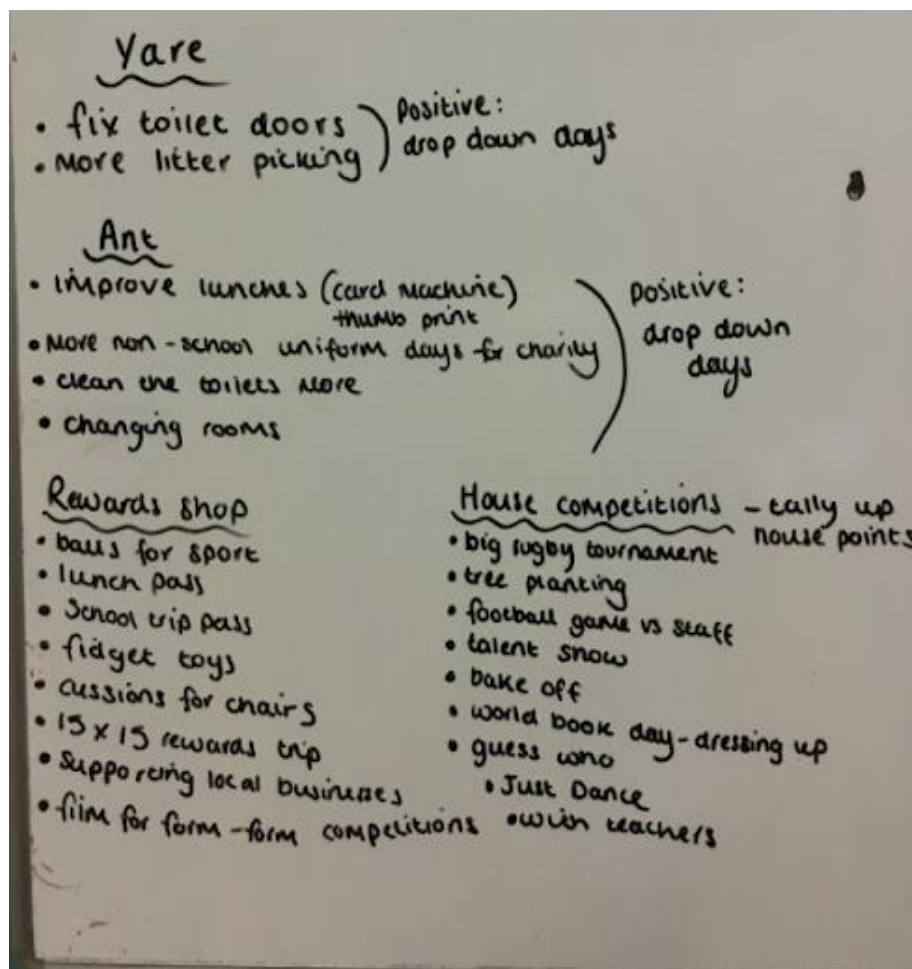 Yare
• fix toilet doors
• More litter picking
Positive:
drop down days
Ant
• improve lunches (card machine)
thumb print
• More non-school uniform days for charity
• clean the toilets more
• changing rooms
positive:
drop down
days
Rewards shop
• balls for sport
• lunch pass
• School trip pass
• fidget toys
• cussions for chairs
• 15 x 15 rewards trip
• Supporting local businesses
• film for form - form competitions
House competitions - tally up
house points
• big rugby tournament
• tree planting
• football game vs staff
• talent show
• bake off
• world book day - dressing up
• guess who
• Just Dance
• with teachers